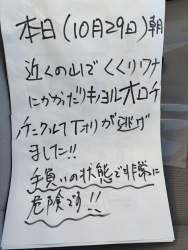 本日(10月29日)朝
近くの山でくくりワナ
にかかったリキョルオロチ
が逃げ
ました!!
手負いの状態で非常に
危険です!!